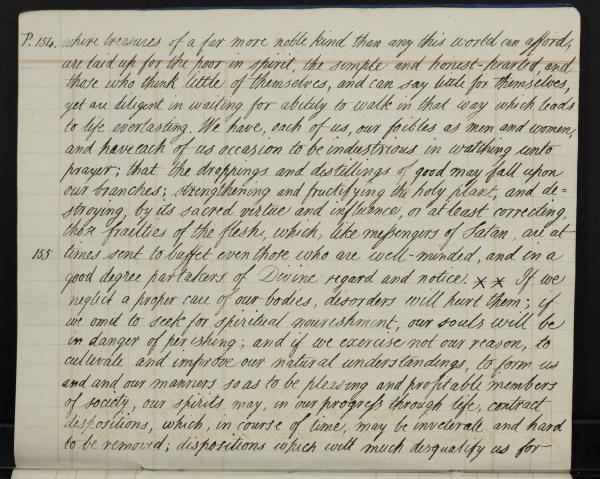 P. 154. where treasures of a far more noble kind than any this world can afford,
are laid up for the poor in spirit, the simple and honest-hearted, and
those who think little of themselves, and can say little for themselves,
yet are diligent in waiting for ability to walk in that way which leads
to life everlasting. We have, each of us, our foibles as men and women,
and have each of us occasion to be industrious in watching unto
prayer; that the droppings and distillings of good may fall upon
our branches; strengthening and fructifying the holy plant, and de=
stroying, by its sacred virtue and influence, or at least correcting,
those frailties of the flesh, which, like messengers of Satan, are at
155 times sent to buffet even those who are well-minded, and in a
good degree partakers of Divine regard and notice. x x If we
neglect a proper care of our bodies, disorders will hurt them; if
we omit to seek for spiritual nourishment, our souls will be
in danger of perishing; and if we exercise not our reason, to
cultivate and improve our natural understandings, to form us
and and our manners so as to be pleasing and profitable members
of society, our spirits may, in our progress through life, contract
dispositions, which, in course of time, may be inveterate and hard
to be removed; dispositions which will much disqualify us for